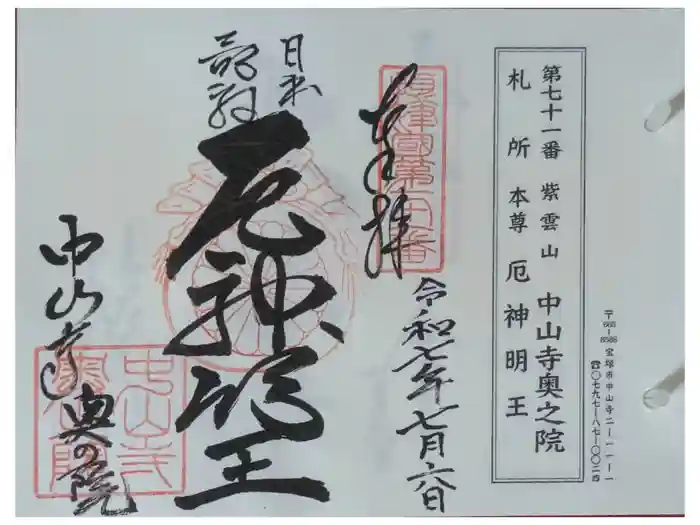 〒665-8588 宝塚市中山寺二-一一-一
☎〇七九七-八七-〇〇二四
第七十一番 紫雲山 中山寺奥之院
札所本尊 厄神明王
奉拝
令和七年七月六日
日本
最初
厄神明王
中山寺
奥の院
中山寺